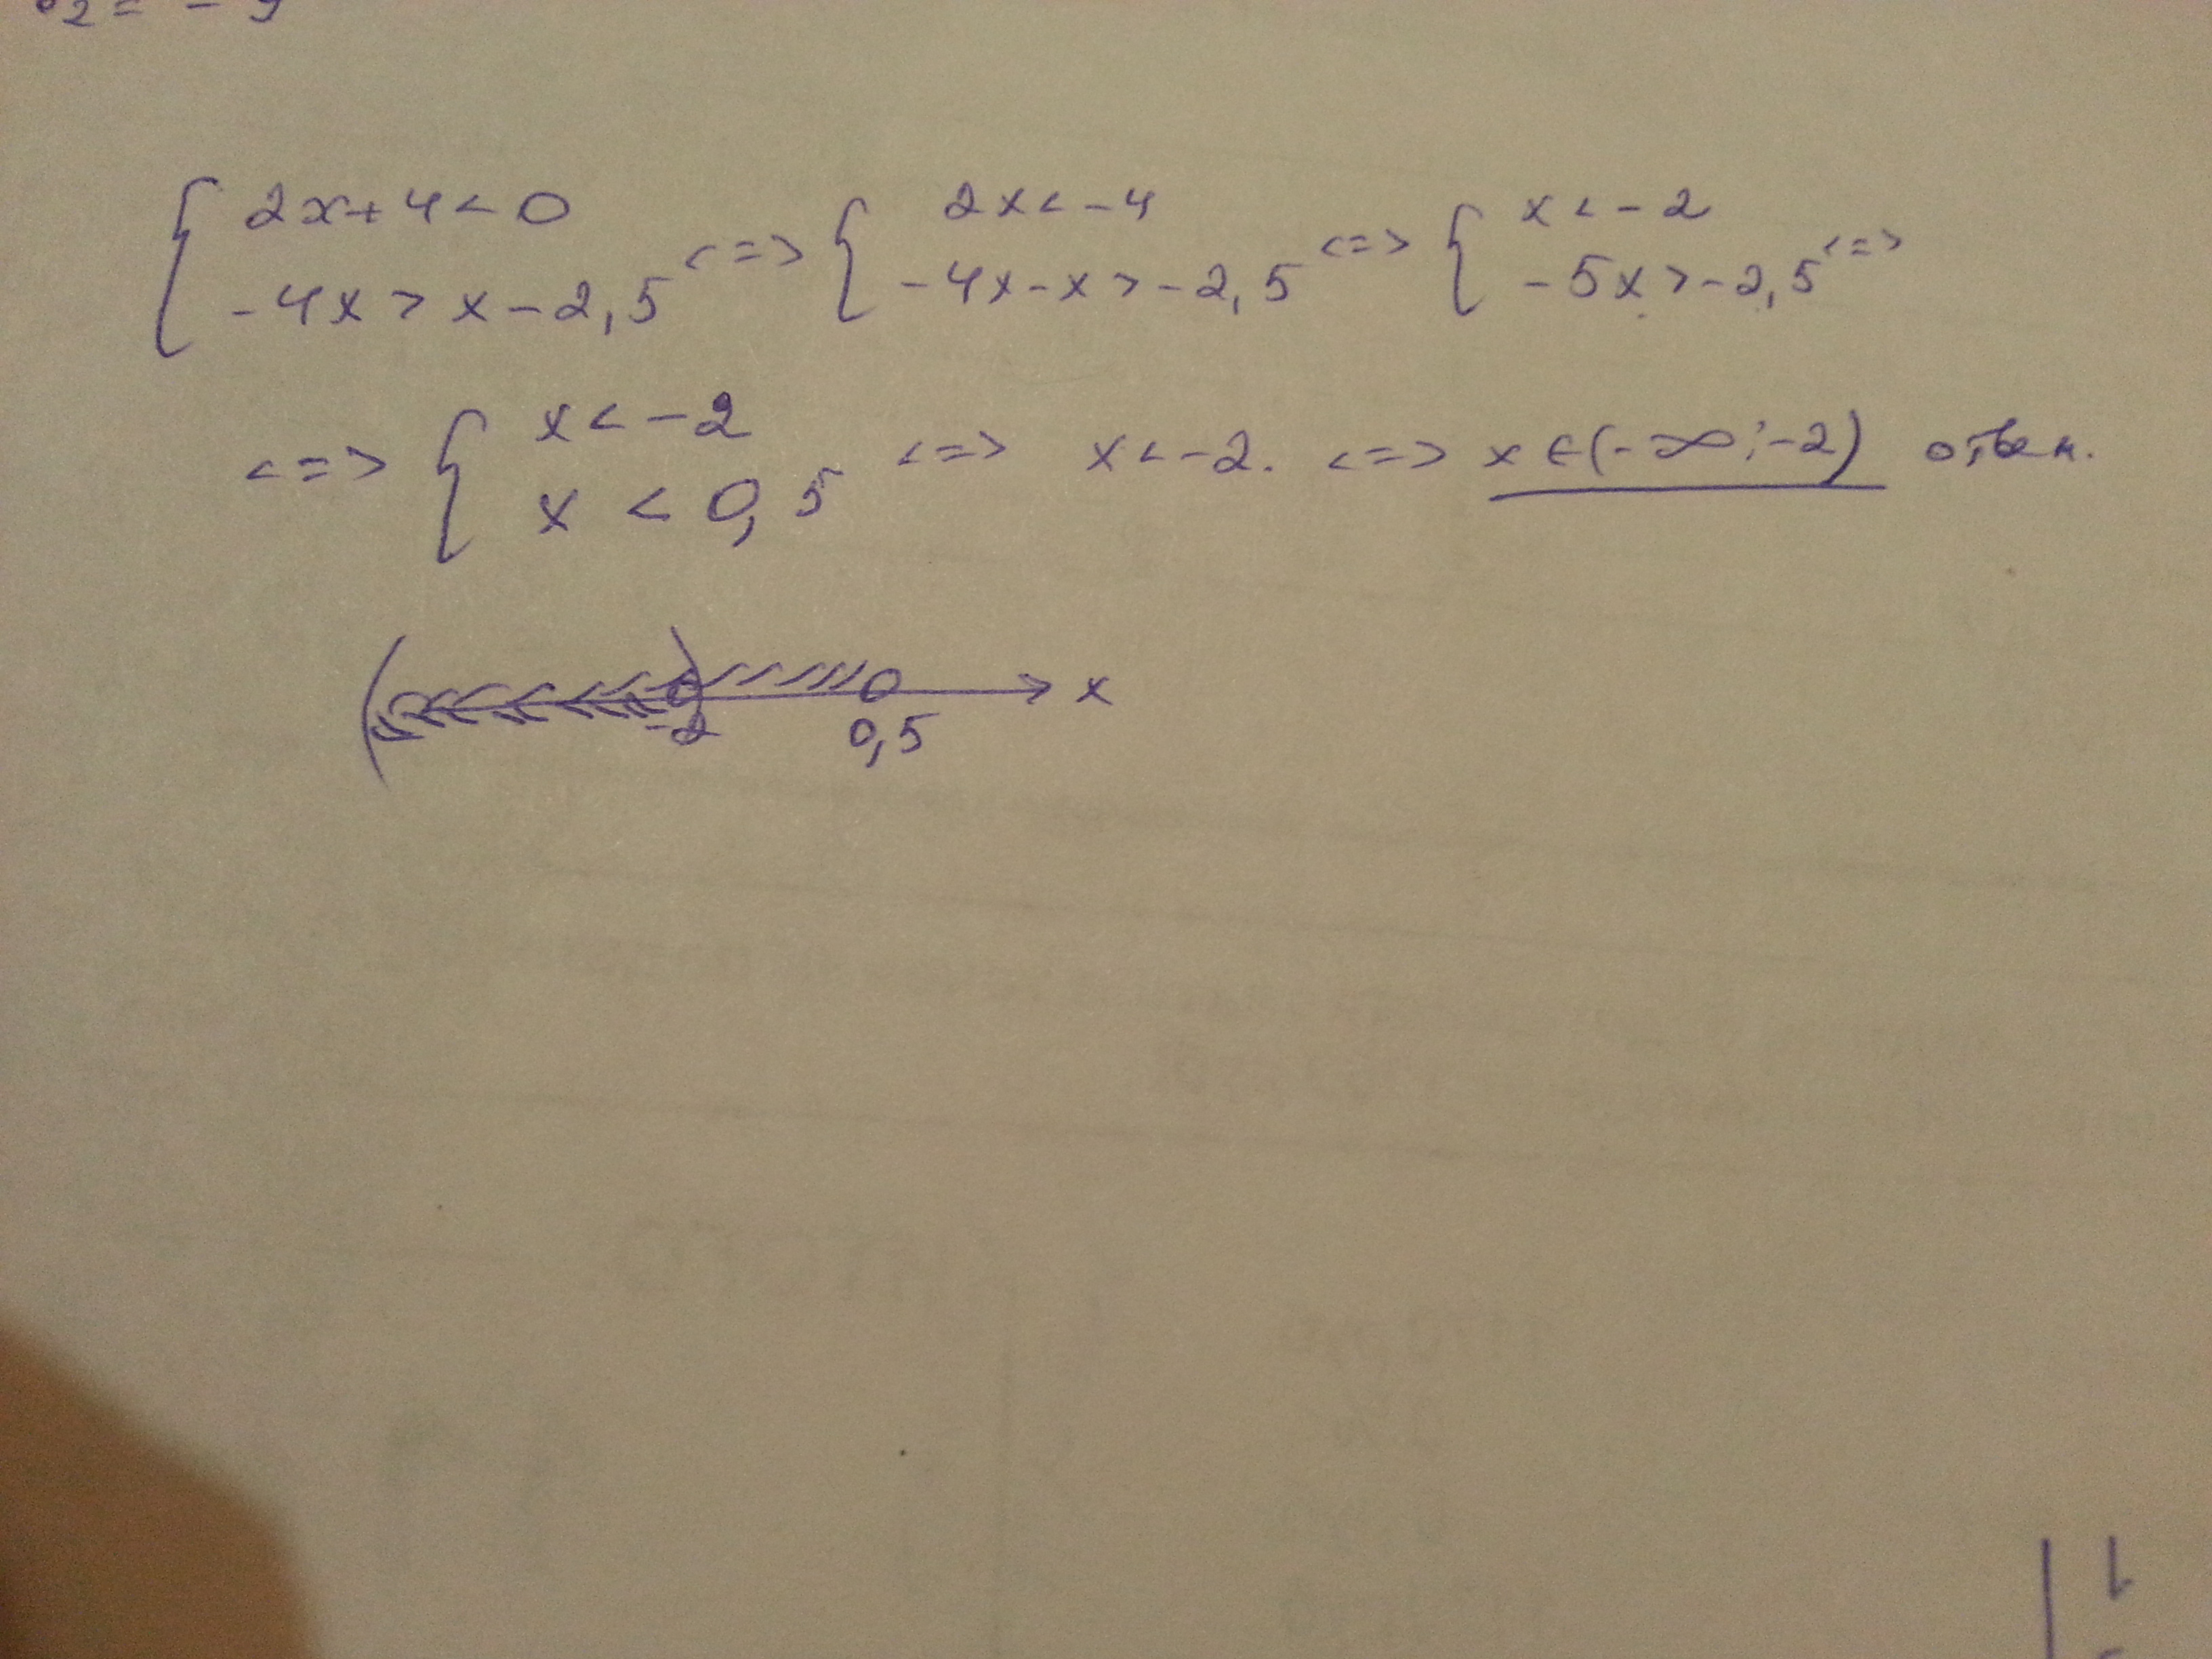 { 2x+4<0
-4x>x-2,5 <=> { 2x<-4
-4x-x>-2,5 <=> { x<-2
-5x>-2,5 <=>
<=> { x<-2
x<0,5 <=> x<-2. <=> x∈(-∞;-2)
-2 0,5 x